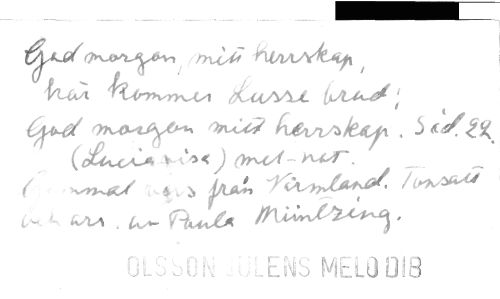 God morgon, mitt herrskap,
här kommer Lusse brud;
God morgon mitt herrskap. Sid. 22.
(Luciavisa) met-not.
Gammal vers från Värmland. Tonsatt
och arr. av Paula Müntzing.
OLSSON JULENS MELODIB